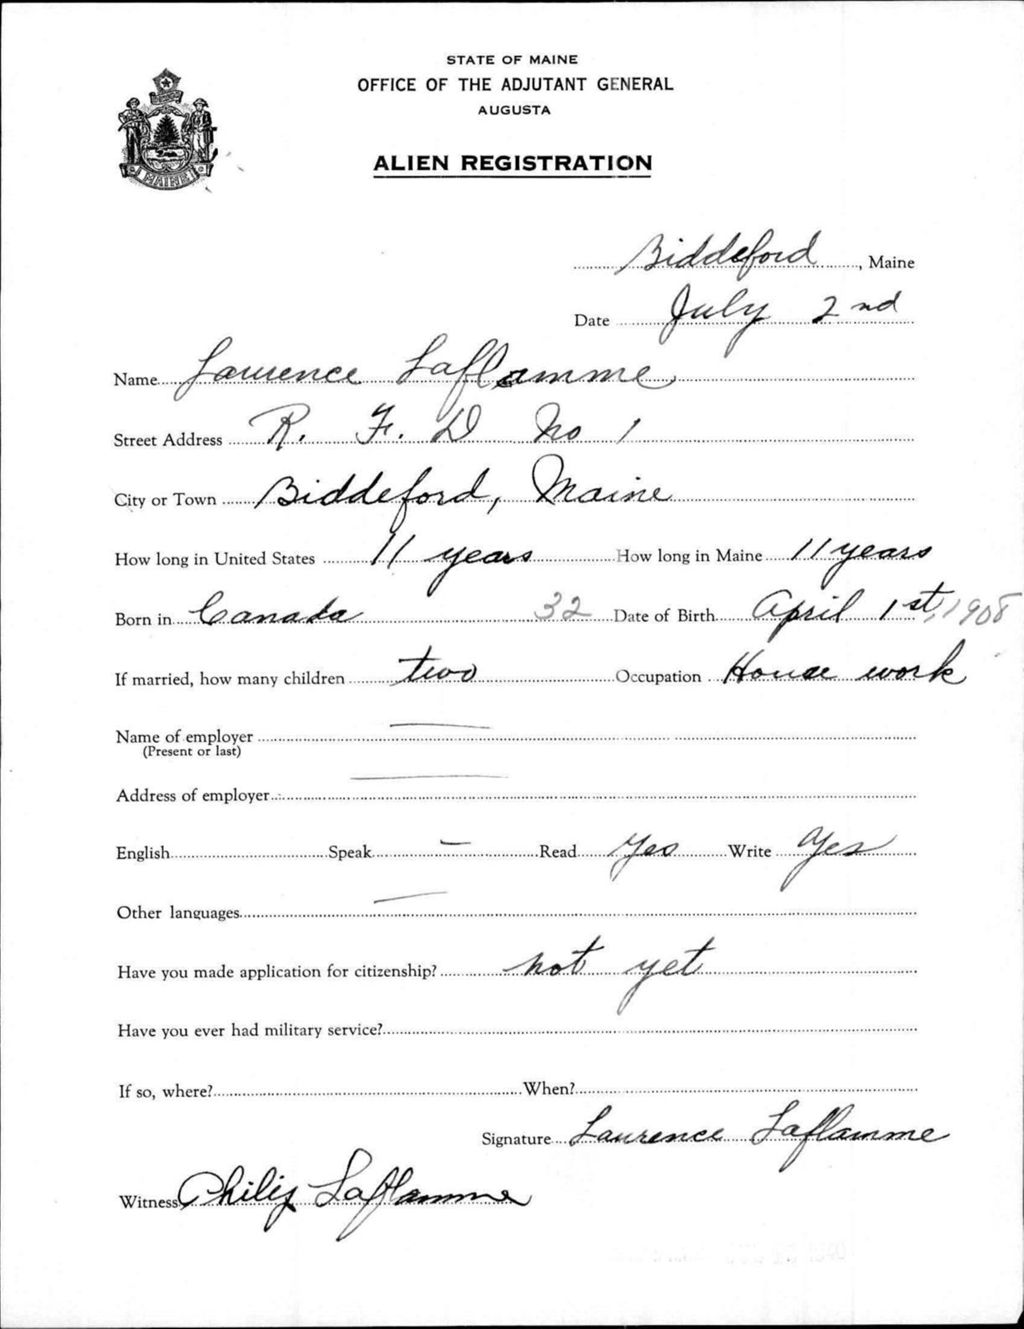 STATE OF MAINE
OFFICE OF THE ADJUTANT GENERAL
AUGUSTA
ALIEN REGISTRATION
MAINE
Biddeford, Maine
Date July 2nd
Name Laurence Laflamme
Street Address R. F. D No 1
City or Town Biddeford, Maine
How long in United States 11 years How long in Maine 11 years
Born in Canada 32 Date of Birth April 1st, 1908
If married, how many children two Occupation House work
Name of employer —
(Present or last)
Address of employer —
English Speak — Read Yes Write Yes
Other languages —
Have you made application for citizenship? not yet
Have you ever had military service?
If so, where? When?
Signature Laurence Laflamme
Witness Philip Laflamme